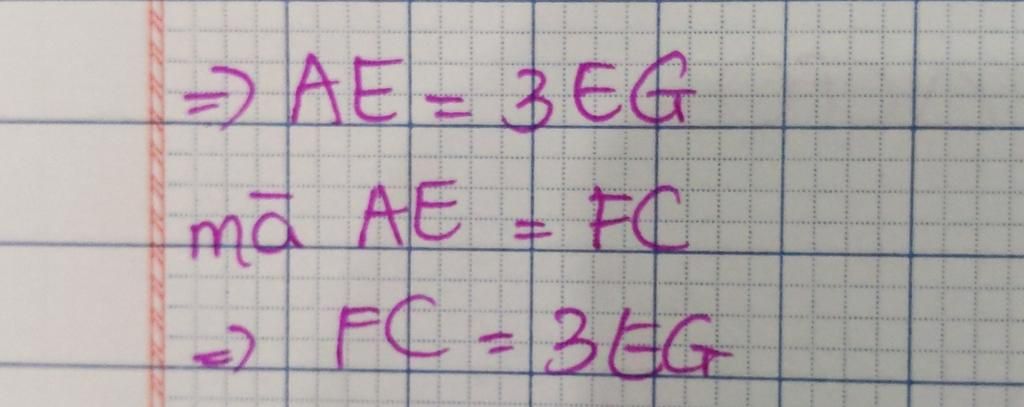 => AE = 3EG
mà AE = FC
=> FC = 3EG